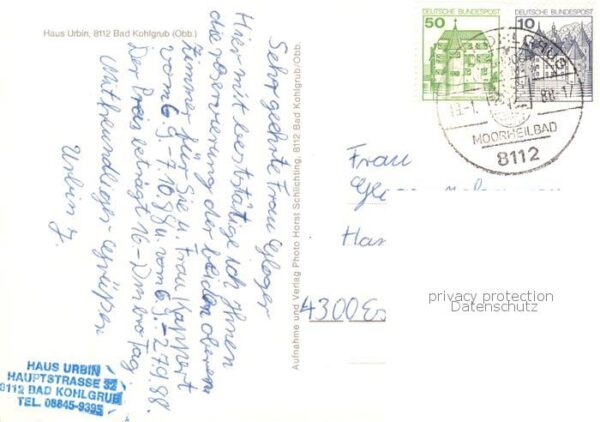 Haus Urbin, 8112 Bad Kohlgrub (Obb.)
Sehr geehrte Frau Gloger
Hiermit bestätige ich Ihnen
die reservierung der beiden oberen
Zimmer für Sie u. Frau Kappert
vom 6.9.-7.10.88 u. vom 6.9.-27.9.88.
Der Preis beträgt 16.- Dm pro Tag.
Mit freundlichen Grüßen
Urbin J.
HAUS URBIN
HAUPTSTRASSE 32
8112 BAD KOHLGRUB
TEL. 08845-9395
Aufnahme und Verlag Photo Horst Schlichting, 8112 Bad Kohlgrub/Obb.
50 DEUTSCHE BUNDESPOST
10 DEUTSCHE BUNDESPOST
88.-17
MOORHEILBAD
8112
Frau
Han
4300 Es
privacy protection
Datenschutz